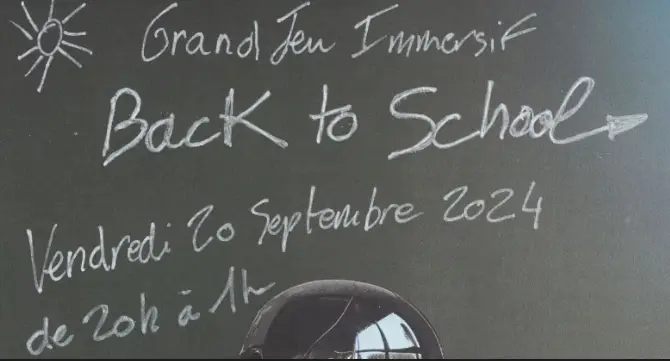 Grand Jeu Immersif
Back to School
Vendredi 20 Septembre 2024
de 20h à 1h